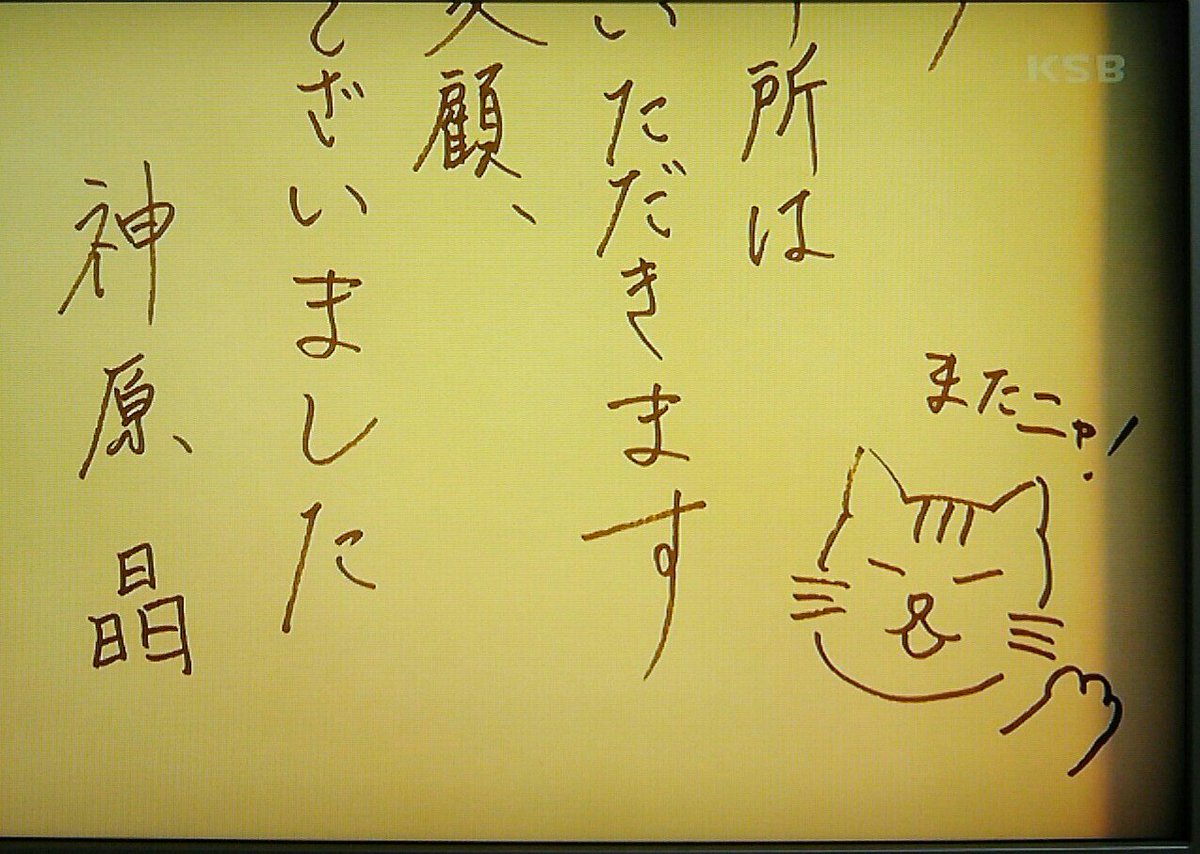 KSB
所は
いただきます
顧、
ございました
神原 晶
またニャ!